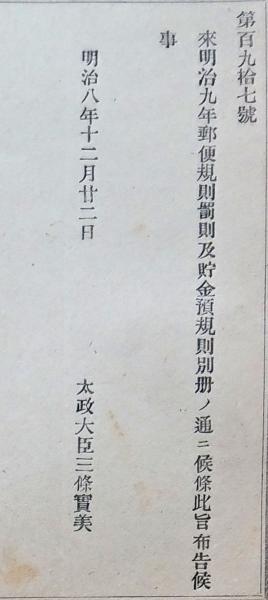 第百九拾七號
來明治九年郵便規則罰則及貯金預規則別册ノ通ニ候條此旨布告候
事
明治八年十二月廿二日
太政大臣三條實美